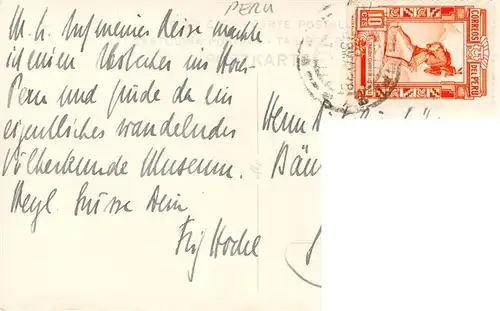 PERU
M. L. Auf meiner Reise machte
ich einen Abstecher ins Hoch-
Peru und finde da ein
eigentliches wandelndes
Völkerkunde Museum.
Herzl. Grüsse Dein
Fritz Hockel
Herrn
CORREOS
DEL PERU
10
CTS
POSTKARTE